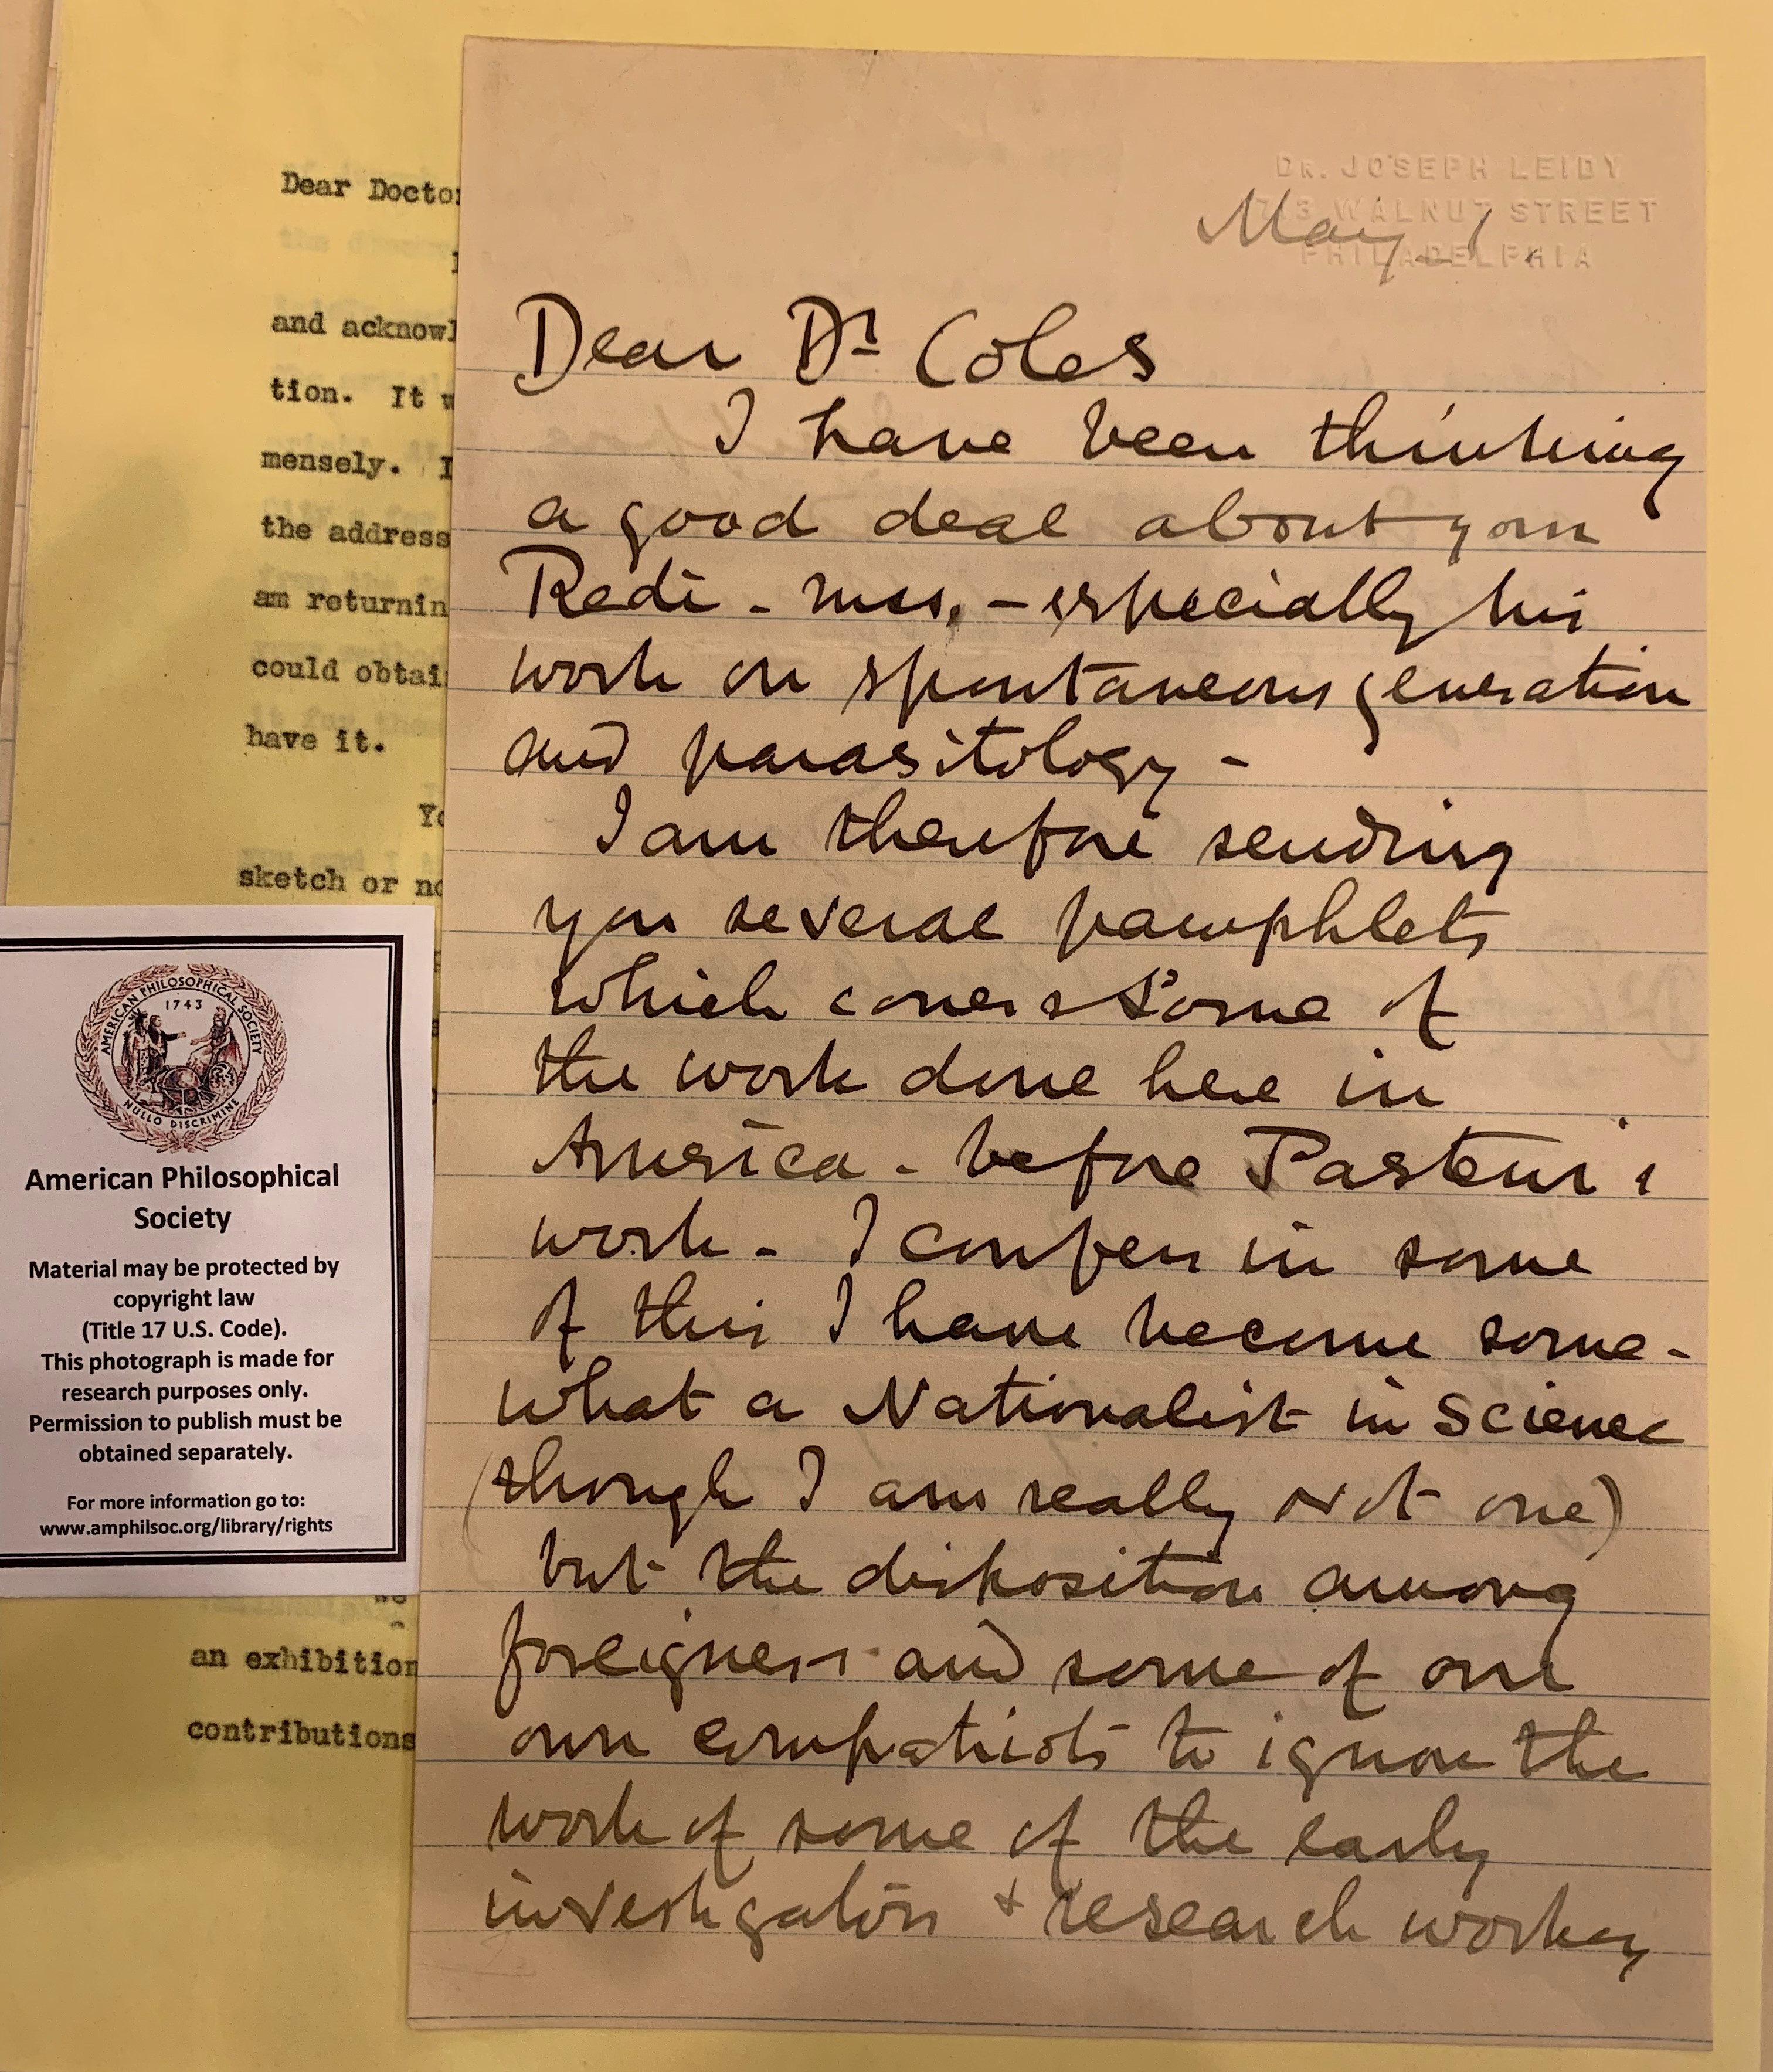 Dear Docto
and acknowl
tion. It w
mensely. I
the address
am returnin
could obtai
have it.
Yo
sketch or no
an exhibition
contributions
AMERICAN PHILOSOPHICAL SOCIETY
1743
NULLO DISCRIMINE
American Philosophical
Society
Material may be protected by
copyright law
(Title 17 U.S. Code).
This photograph is made for
research purposes only.
Permission to publish must be
obtained separately.
For more information go to:
www.amphilsoc.org/library/rights
DR. JOSEPH LEIDY
WALNUT STREET
PHILADELPHIA
May 1
Dear Dr Coles
I have been thinking
a good deal about your
Redi - mss. - especially his
work on spontaneous generation
and parasitology -
I am therefore sending
you several pamphlets
which covers some of
the work done here in
America - before Pasteur's
work - I confess in some
of this I have become some-
what a Nationalist in Science
(though I am really not one)
but the disposition among
foreigners and some of our
own compatriots to ignore the
work of some of the early
investigators + research workers